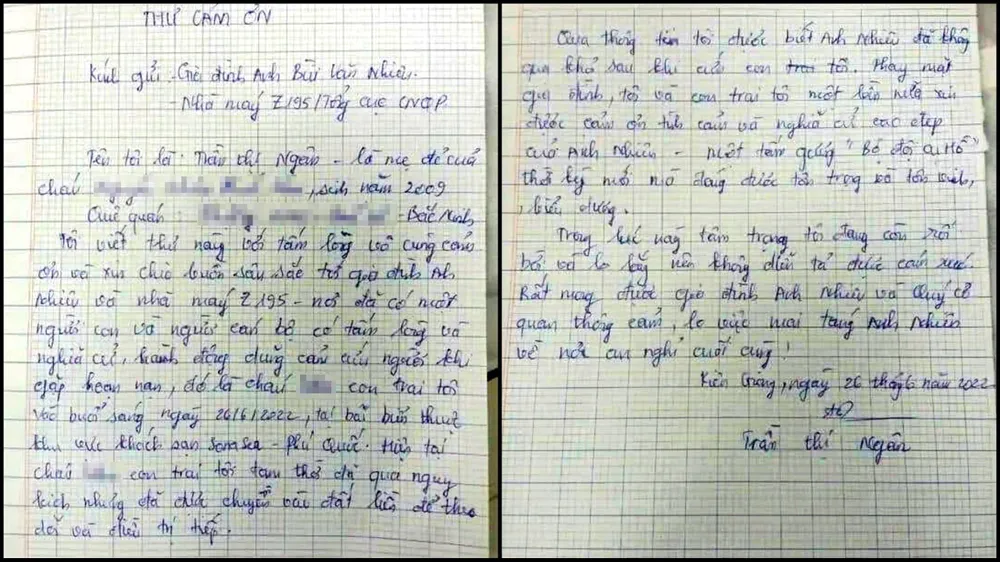 THƯ CẢM ƠN
Kính gửi - Gia đình Anh Bùi Văn Nhiên.
- Nhà máy Z195/Tổng cục CNQP.
Tên tôi là: Trần Thị Ngân - là mẹ đẻ của
cháu , sinh năm 2009
Quê quán : - Bắc Ninh
Tôi viết thư này với tấm lòng vô cùng cảm
ơn và xin chia buồn sâu sắc tới gia đình Anh
Nhiên và nhà máy Z195 - nơi đã có một
người con và người cán bộ có tấm lòng và
nghĩa cử, hành động dũng cảm cứu người khi
gặp hoạn nạn, đó là cháu con trai tôi
vào buổi sáng ngày 26/6/2022, tại bãi biển thuộc
khu vực khách sạn Sonasea - Phú Quốc. Hiện tại
cháu con trai tôi tạm thời đã qua nguy
kịch nhưng đã được chuyển vào đất liền để theo
dõi và điều trị tiếp.
Qua thông tin tôi được biết Anh Nhiên đã không
qua khỏi sau khi cứu con trai tôi. Thay mặt
gia đình, tôi và con trai tôi một lần nữa xin
được cảm ơn tình cảm và nghĩa cử cao đẹp
của Anh Nhiên - một tấm gương "Bộ đội cụ Hồ"
thời kỳ mới mà đáng được tôn trọng và tôn vinh,
, biểu dương.
Trong lúc này tâm trạng tôi đang còn rối
bời và lo lắng nên không diễn tả được cảm xúc.
Rất mong được gia đình Anh Nhiên và Quý cơ
quan thông cảm, lo việc mai táng Anh Nhiên
về nơi an nghỉ cuối cùng!
Kiên Giang, ngày 26 tháng 6 năm 2022
Trần Thị Ngân